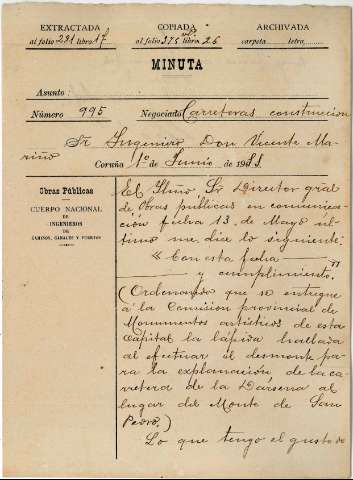 EXTRACTADA
al folio 291 libro 17
COPIADA
al folio 375 libro 26
ARCHIVADA
carpeta letra
MINUTA
Asunto
Número 995
Negociado Carreteras construcción
Sr Ingeniero Don Vicente Ma-
riño
Coruña 1º de Junio de 19
Obras Públicas
CUERPO NACIONAL
DE
INGENIEROS
DE
CAMINOS, CANALES Y PUERTOS
El Iltmo Sr Director gral
de Obras públicas en comunica-
ción fecha 13 de Mayo úl-
timo me dice lo siguiente:
"Con esta fecha
y cumplimiento."
(Ordenando que se entregue
á la Comisión provincial de
Monumentos artísticos de esta
Capital la lápida hallada
al efectuar el desmonte pa-
ra la explanación de la ca-
rretera de la Dársena al
lugar del Monte de San
Pedro.)
Lo que tengo el gusto de